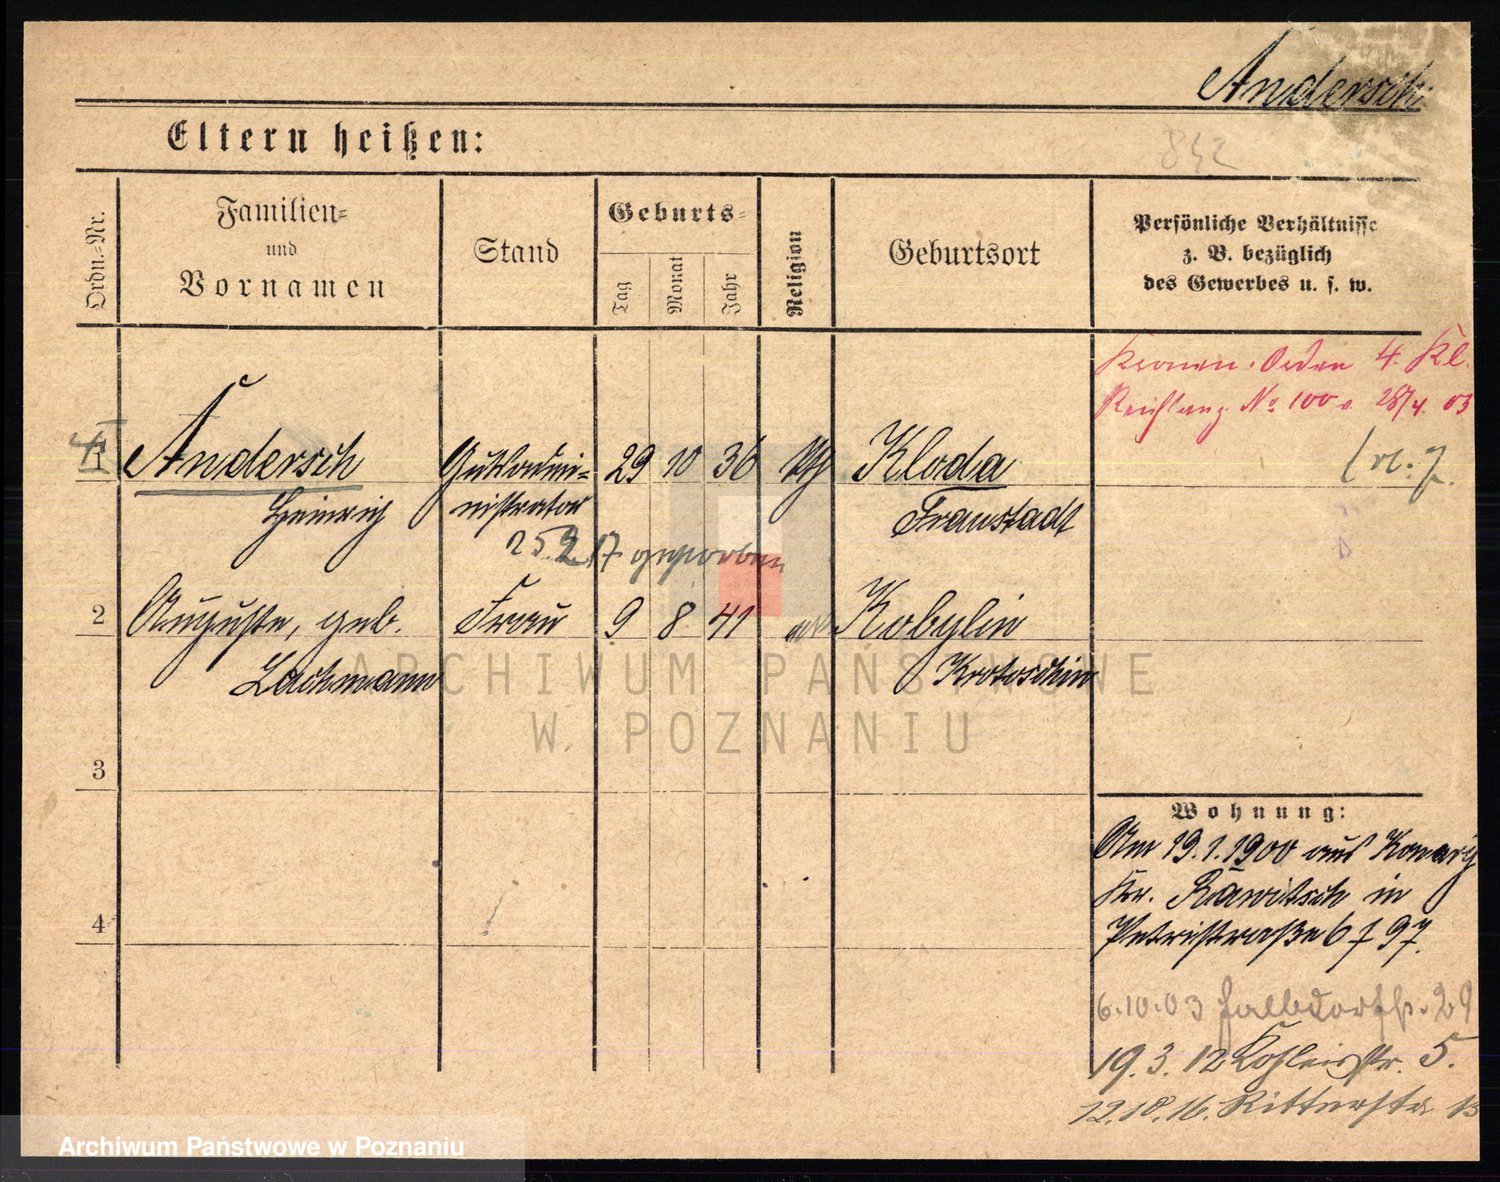 Andersch
842
Eltern heißen:
Ordn.-Nr.
Familien-
und
Vornamen
Stand
Geburts-
Tag
Monat
Jahr
Religion
Geburtsort
Persönliche Verhältnisse
z. B. bezüglich
des Gewerbes u. s. w.
Kronen-Orden 4. Kl.
Reichsanz. No 100 v. 28/4. 03
1
Andersch
Heinrich
Gutsadmi-
nistrator
29 10 36
Kloda
Fraustadt
25.2.17 gestorben
2
Auguste, geb.
Lachmann
Frau
9 8 41
Kobylin
Krotoschin
3
4
Wohnung:
Am 19.1.1900 aus Konary
Kr. Rawitsch in
Petristraße 6 f 97.
6.10.03 29
19.3.12 Kohleisstr. 5.
12.10.16. Ritterstr. 13
ARCHIWUM PAŃSTWOWE
W POZNANIU
Archiwum Państwowe w Poznaniu